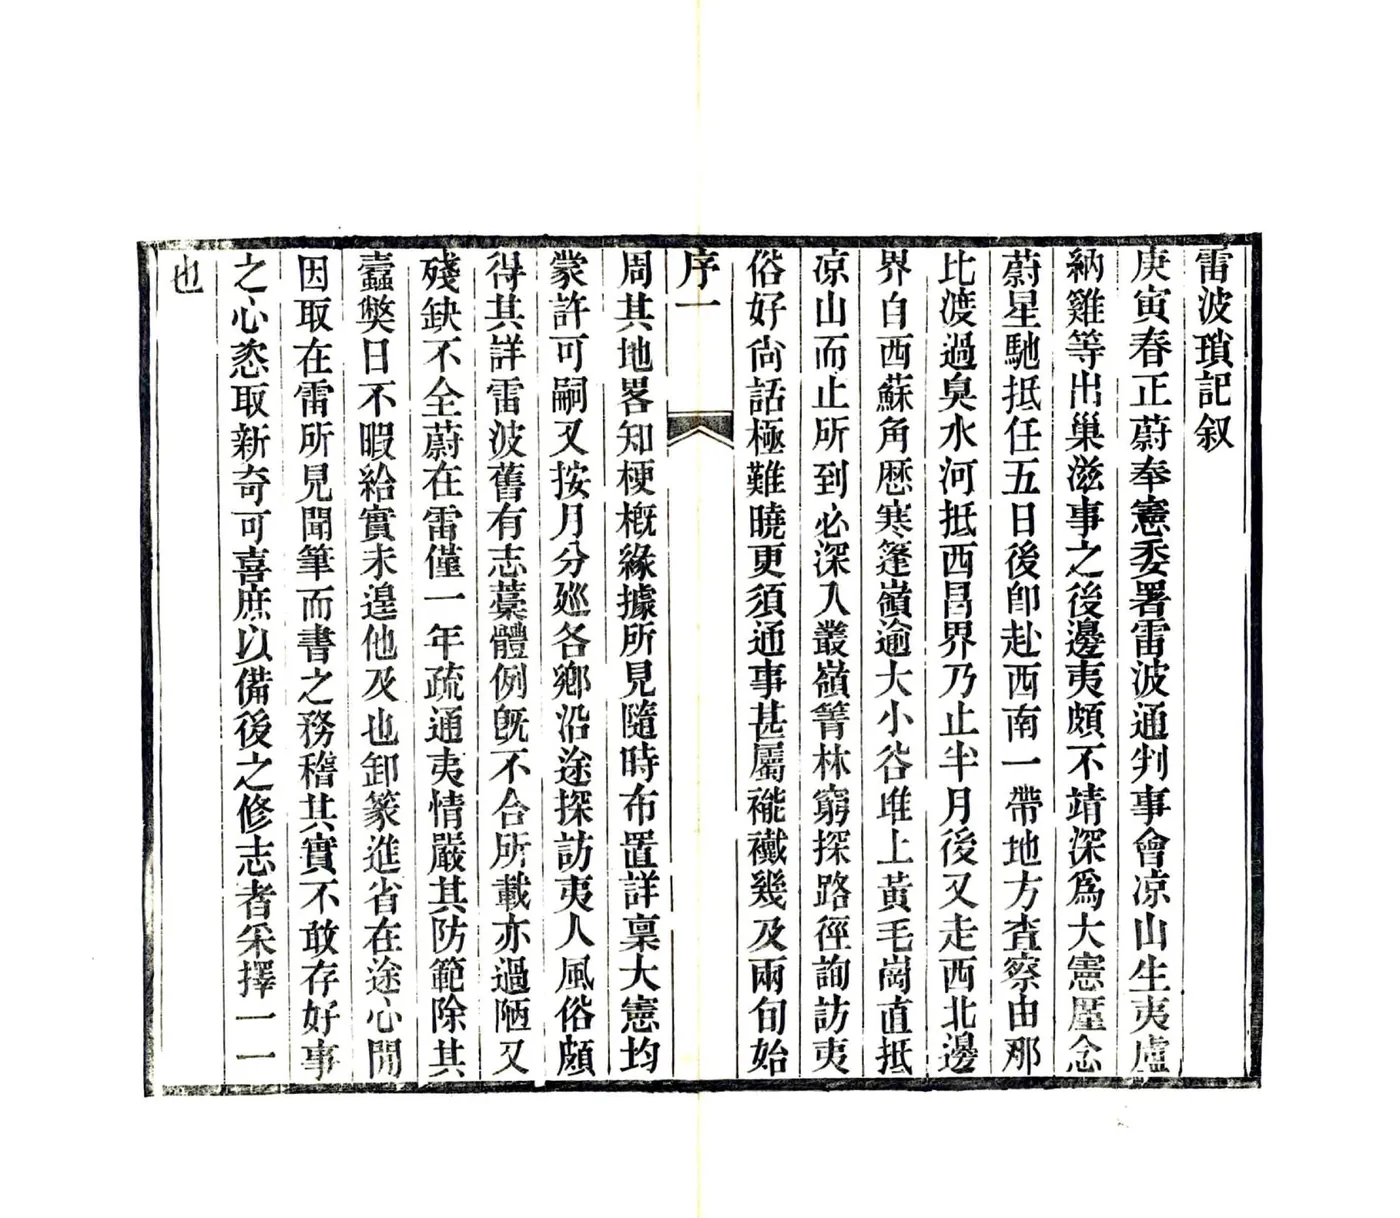 雷波瑣記叙
庚寅春正蔚奉憲委署雷波通判事會凉山生夷盧
納雞等出巢滋事之後邊夷頗不靖深爲大憲厪念
蔚星馳抵任五日後卽赴西南一帶地方査察由那
比渡過臭水河抵西昌界乃止半月後又走西北邊
界自西蘇角歷寒篷嶺逾大小谷堆上黃毛崗直抵
凉山而止所到必深入叢嶺箐林窮探路徑詢訪夷
俗好尙話極難曉更須通事甚屬褦襶幾及兩旬始
序一
周其地畧知梗概緣據所見隨時布置詳稟大憲均
蒙許可嗣又按月分廵各鄉沿途探訪夷人風俗頗
得其詳雷波舊有志藁體例旣不合所載亦過陋又
殘缺不全蔚在雷僅一年疏通夷情嚴其防範除其
蠹獘日不暇給實未遑他及也卸篆進省在途心閒
因取在雷所見聞筆而書之務稽其實不敢存好事
之心恣取新奇可喜庶以備後之修志者采擇一一
也